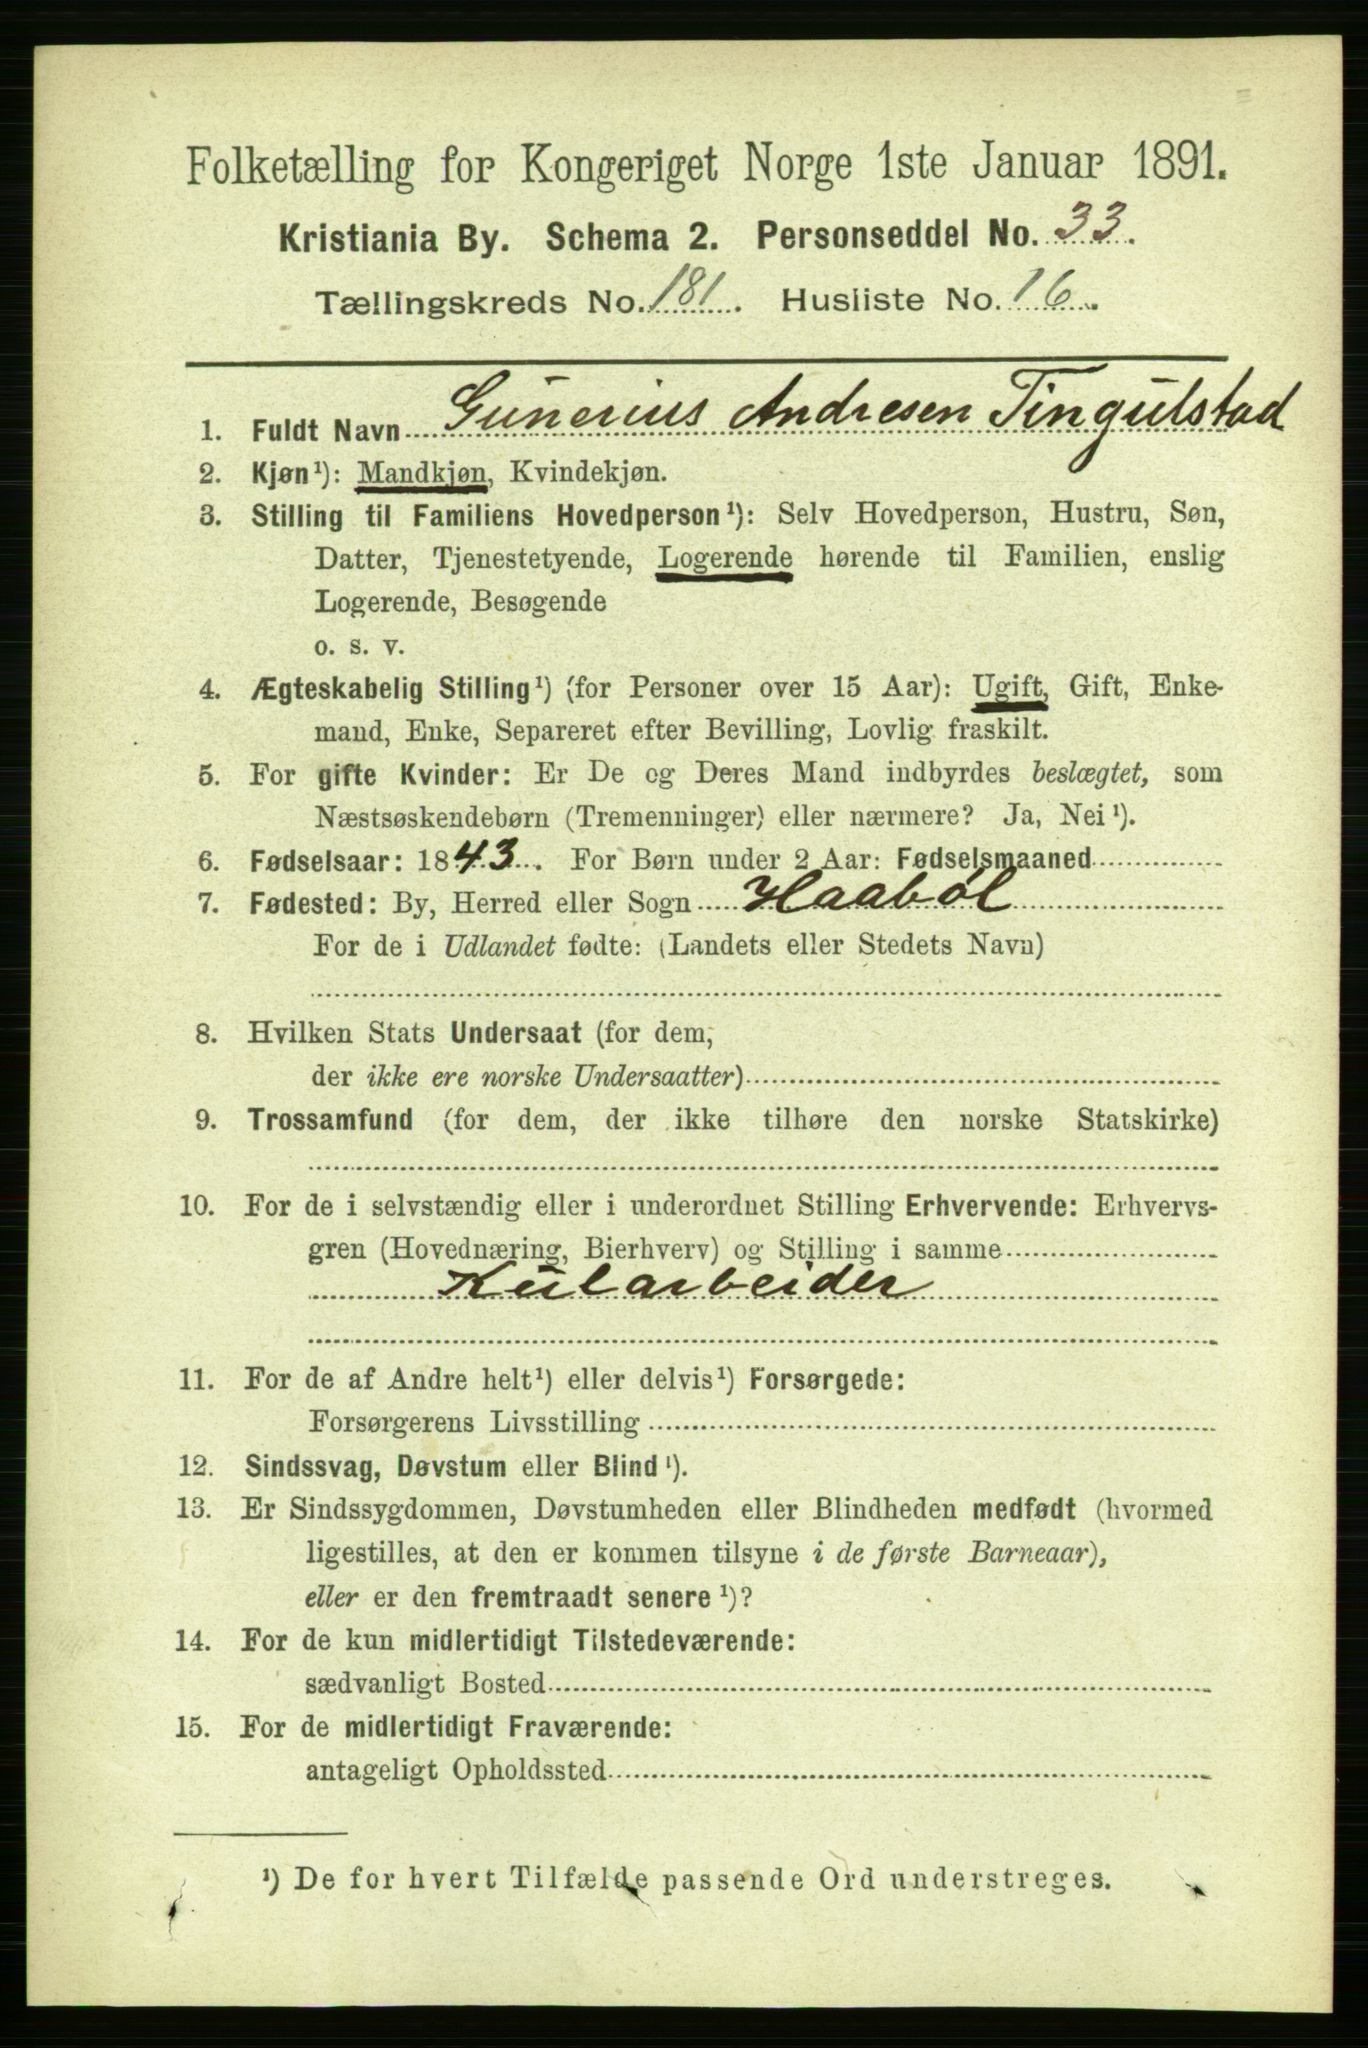 Folketælling for Kongeriget Norge 1ste Januar 1891.
Kristiania By. Schema 2. Personseddel No. 33.
Tællingskreds No. 181. Husliste No. 16.
1. Fuldt Navn Gunerius Andresen Tingulstad
2. Kjøn¹): Mandkjøn, Kvindekjøn.
3. Stilling til Familiens Hovedperson¹): Selv Hovedperson, Hustru, Søn,
Datter, Tjenestetyende, Logerende hørende til Familien, enslig
Logerende, Besøgende
o. s. v.
4. Ægteskabelig Stilling¹) (for Personer over 15 Aar): Ugift, Gift, Enke-
mand, Enke, Separeret efter Bevilling, Lovlig fraskilt.
5. For gifte Kvinder: Er De og Deres Mand indbyrdes beslægtet, som
Næstsøskendebørn (Tremenninger) eller nærmere? Ja, Nei¹).
6. Fødselsaar: 1843. For Børn under 2 Aar: Fødselsmaaned
7. Fødested: By, Herred eller Sogn Haabøl
For de i Udlandet fødte: (Landets eller Stedets Navn)
8. Hvilken Stats Undersaat (for dem,
der ikke ere norske Undersaatter)
9. Trossamfund (for dem, der ikke tilhøre den norske Statskirke)
10. For de i selvstændig eller i underordnet Stilling Erhvervende: Erhvervs-
gren (Hovednæring, Bierhverv) og Stilling i samme
Kularbeider
11. For de af Andre helt¹) eller delvis¹) Forsørgede:
Forsørgerens Livsstilling
12. Sindssvag, Døvstum eller Blind¹).
13. Er Sindssygdommen, Døvstumheden eller Blindheden medfødt (hvormed
ligestilles, at den er kommen tilsyne i de første Barneaar),
eller er den fremtraadt senere¹)?
14. For de kun midlertidigt Tilstedeværende:
sædvanligt Bosted
15. For de midlertidigt Fraværende:
antageligt Opholdssted
¹) De for hvert Tilfælde passende Ord understreges.